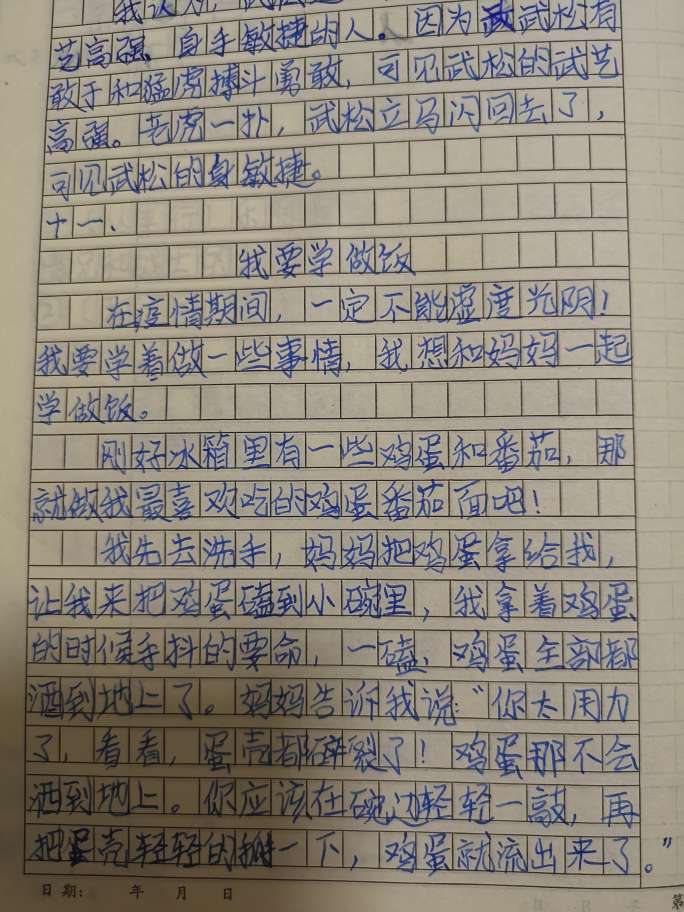 我认为，武松是
艺高强、自手敏捷的人。因为武武松有
敢于和猛虎搏斗勇敢，可见武松的武艺
高强。老虎一扑，武松立马闪回去了，
可见武松的身敏捷。
十一、
我要学做饭
在疫情期间，一定不能虚度光阴！
我要学着做一些事情，我想和妈妈一起
学做饭。
刚好冰箱里有一些鸡蛋和番茄，那
就做我最喜欢吃的鸡蛋番茄面吧！
我先去洗手，妈妈把鸡蛋拿给我，
让我来把鸡蛋磕到小碗里，我拿着鸡蛋
的时候手抖的要命，一磕，鸡蛋全部都
洒到地上了。妈妈告诉我说：“你太用力
了，看看，蛋壳都碎裂了！鸡蛋那不会
洒到地上。你应该在碗边轻轻一敲，再
把蛋壳轻轻的掰一下，鸡蛋就流出来了。”
日期： 年 月 日
第